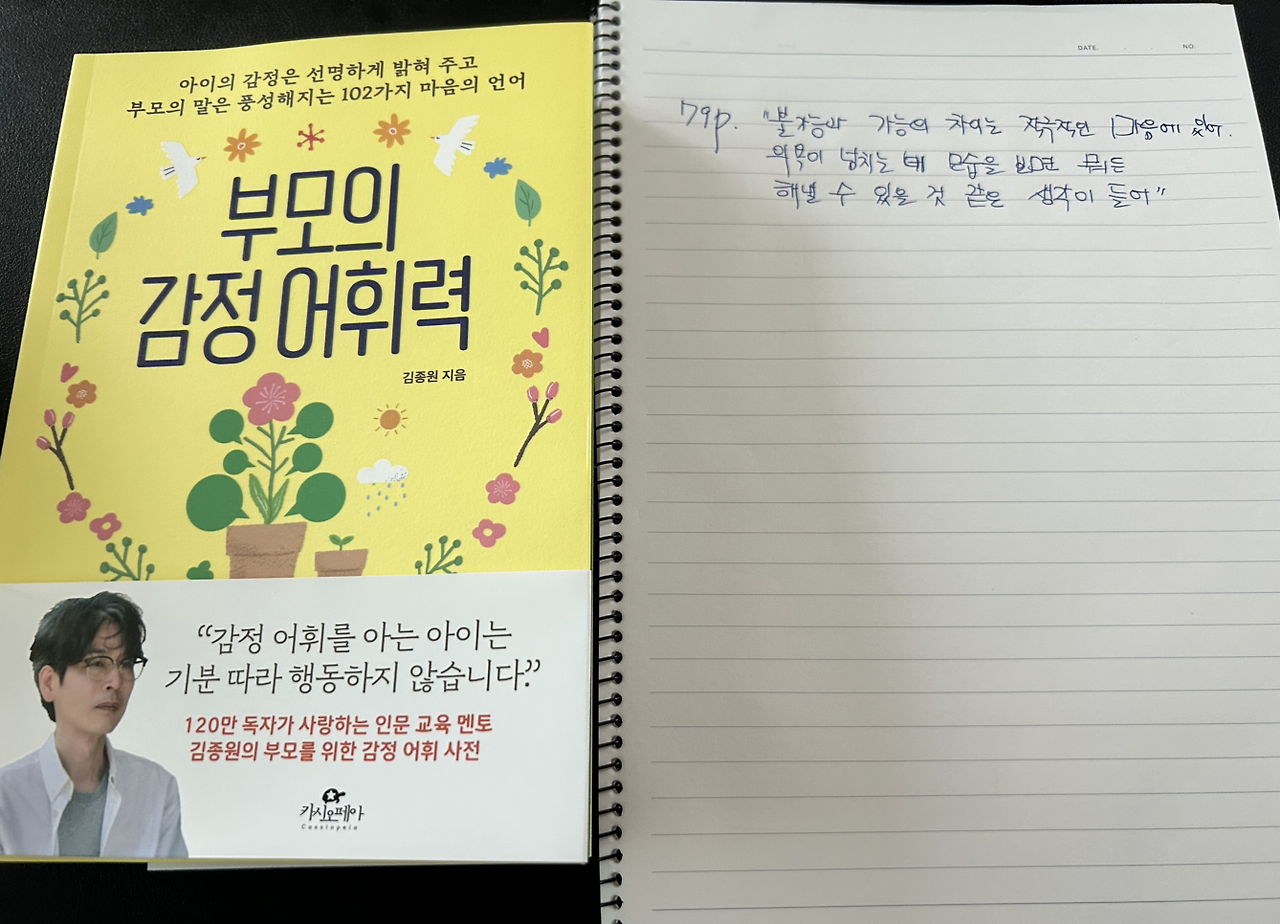 아이의 감정은 선명하게 밝혀 주고
부모의 말은 풍성해지는 102가지 마음의 언어
부모의
감정 어휘력
김종원 지음
“감정 어휘를 아는 아이는
기분 따라 행동하지 않습니다.”
120만 독자가 사랑하는 인문 교육 멘토
김종원의 부모를 위한 감정 어휘 사전
카시오페아
Cassiopeia
DATE. . . NO:
79p. "불가능과 가능의 차이는 적극적인 마음에 있어.
의욕이 넘치는 네 모습을 보면 뭐든
해낼 수 있을 것 같은 생각이 들어"